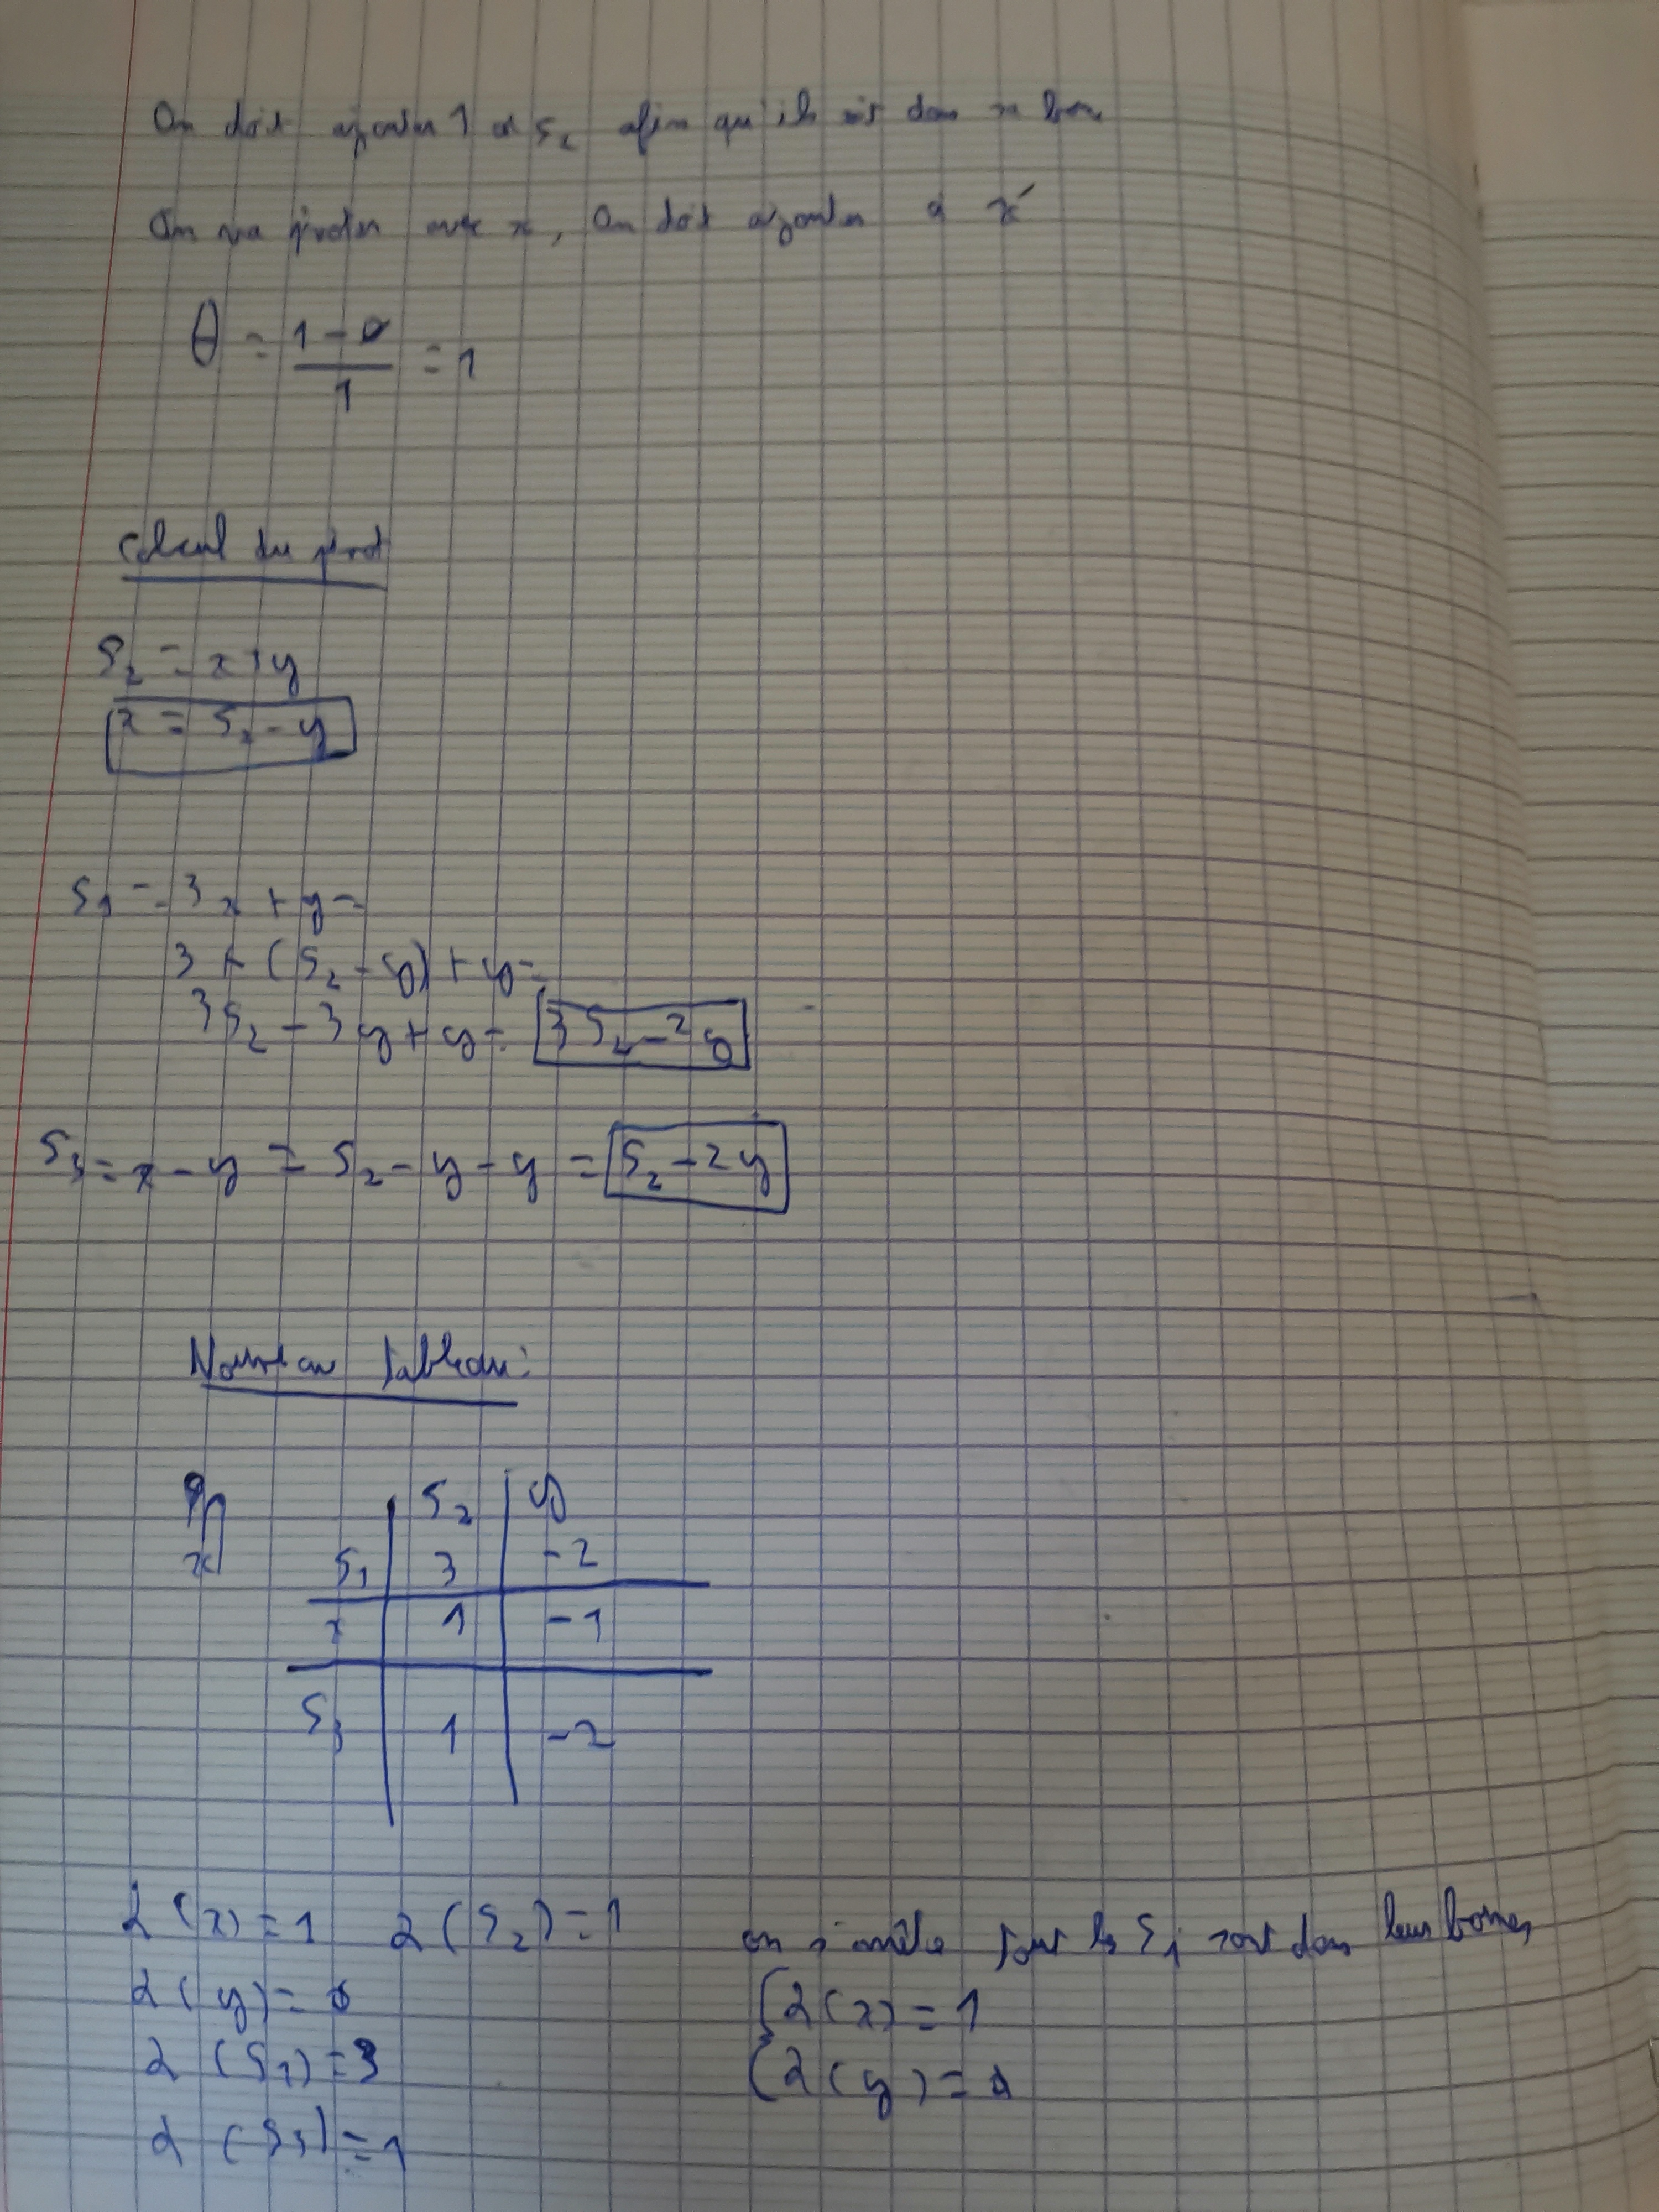 On doit ajouter 1 à S₂ afin qu'ils soit dans sa borne
On va pivoter avec x, On doit ajouter à x
θ = (1 - 0)/1 = 1
Calcul du pivot
S₂ = x + y
x = S₂ - y
S₁ = 3x + y =
3 × (S₂ - y) + y =
3S₂ - 3y + y = 3S₂ - 2y
S₃ = x - y = S₂ - y - y = S₂ - 2y
Nouveau tableau :
S₂ y
S₁ 3 -2
x 1 -1
S₃ 1 -2
α(x) = 1 α(S₂) = 1 on s'arrête tout les Sᵢ sont dans leur bornes
α(y) = 0 { α(x) = 1
α(S₁) = 3 { α(y) =
α(S₃) = 1